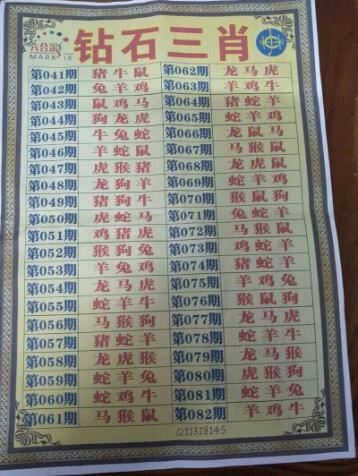 六合彩
MARK SIX
钻石三肖
第041期 猪牛鼠 第062期 龙马虎
第042期 兔羊鸡 第063期 羊鸡牛
第043期 鼠鸡马 第064期 猪蛇羊
第044期 狗龙虎 第065期 蛇羊鸡
第045期 牛兔蛇 第066期 龙鼠马
第046期 羊蛇鼠 第067期 马猴鼠
第047期 虎猴猪 第068期 龙虎鼠
第048期 龙狗羊 第069期 蛇羊鸡
第049期 猪狗牛 第070期 猴鼠狗
第050期 虎蛇马 第071期 兔蛇羊
第051期 鸡猪虎 第072期 马猴鼠
第052期 猴狗兔 第073期 鸡蛇羊
第053期 羊兔鸡 第074期 猪蛇羊
第054期 龙马虎 第075期 羊鸡兔
第055期 蛇羊牛 第076期 猴鼠狗
第056期 马猴狗 第077期 龙马虎
第057期 猪蛇羊 第078期 蛇羊牛
第058期 龙虎猴 第079期 龙马鼠
第059期 蛇羊兔 第080期 虎猴狗
第060期 蛇鸡牛 第081期 蛇羊兔
第061期 马猴鼠 第082期 羊鸡牛
Q11318145